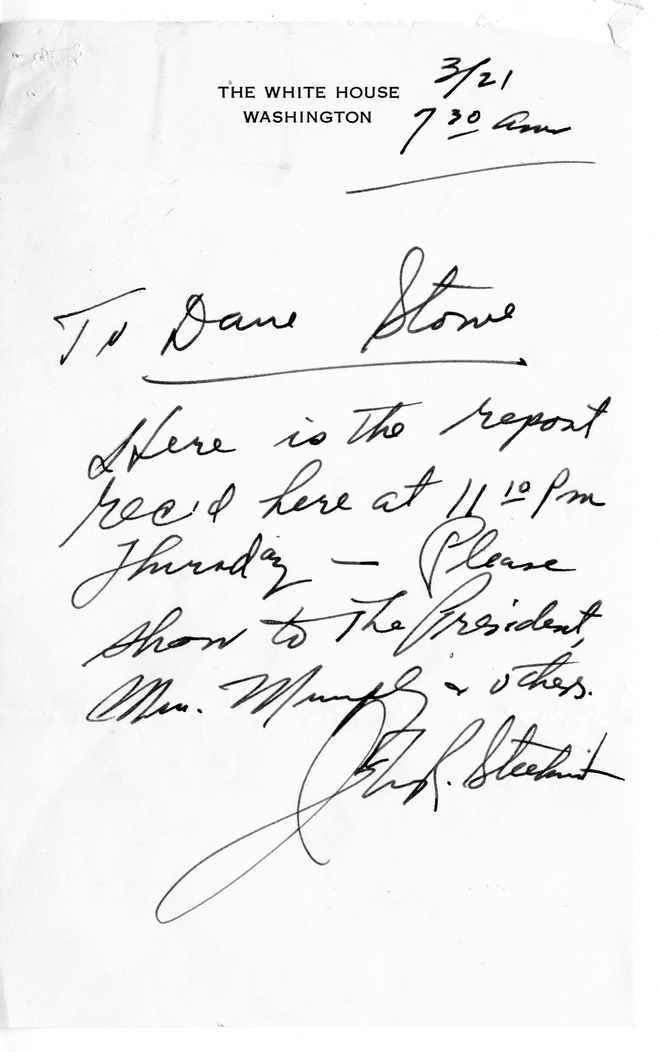 THE WHITE HOUSE
WASHINGTON
3/21
7 30 am
To Dave Stowe
Here is the report
rec'd here at 11 10 Pm
Thursday — Please
show to the President,
Mr. Murphy & others.
John R. Steelman